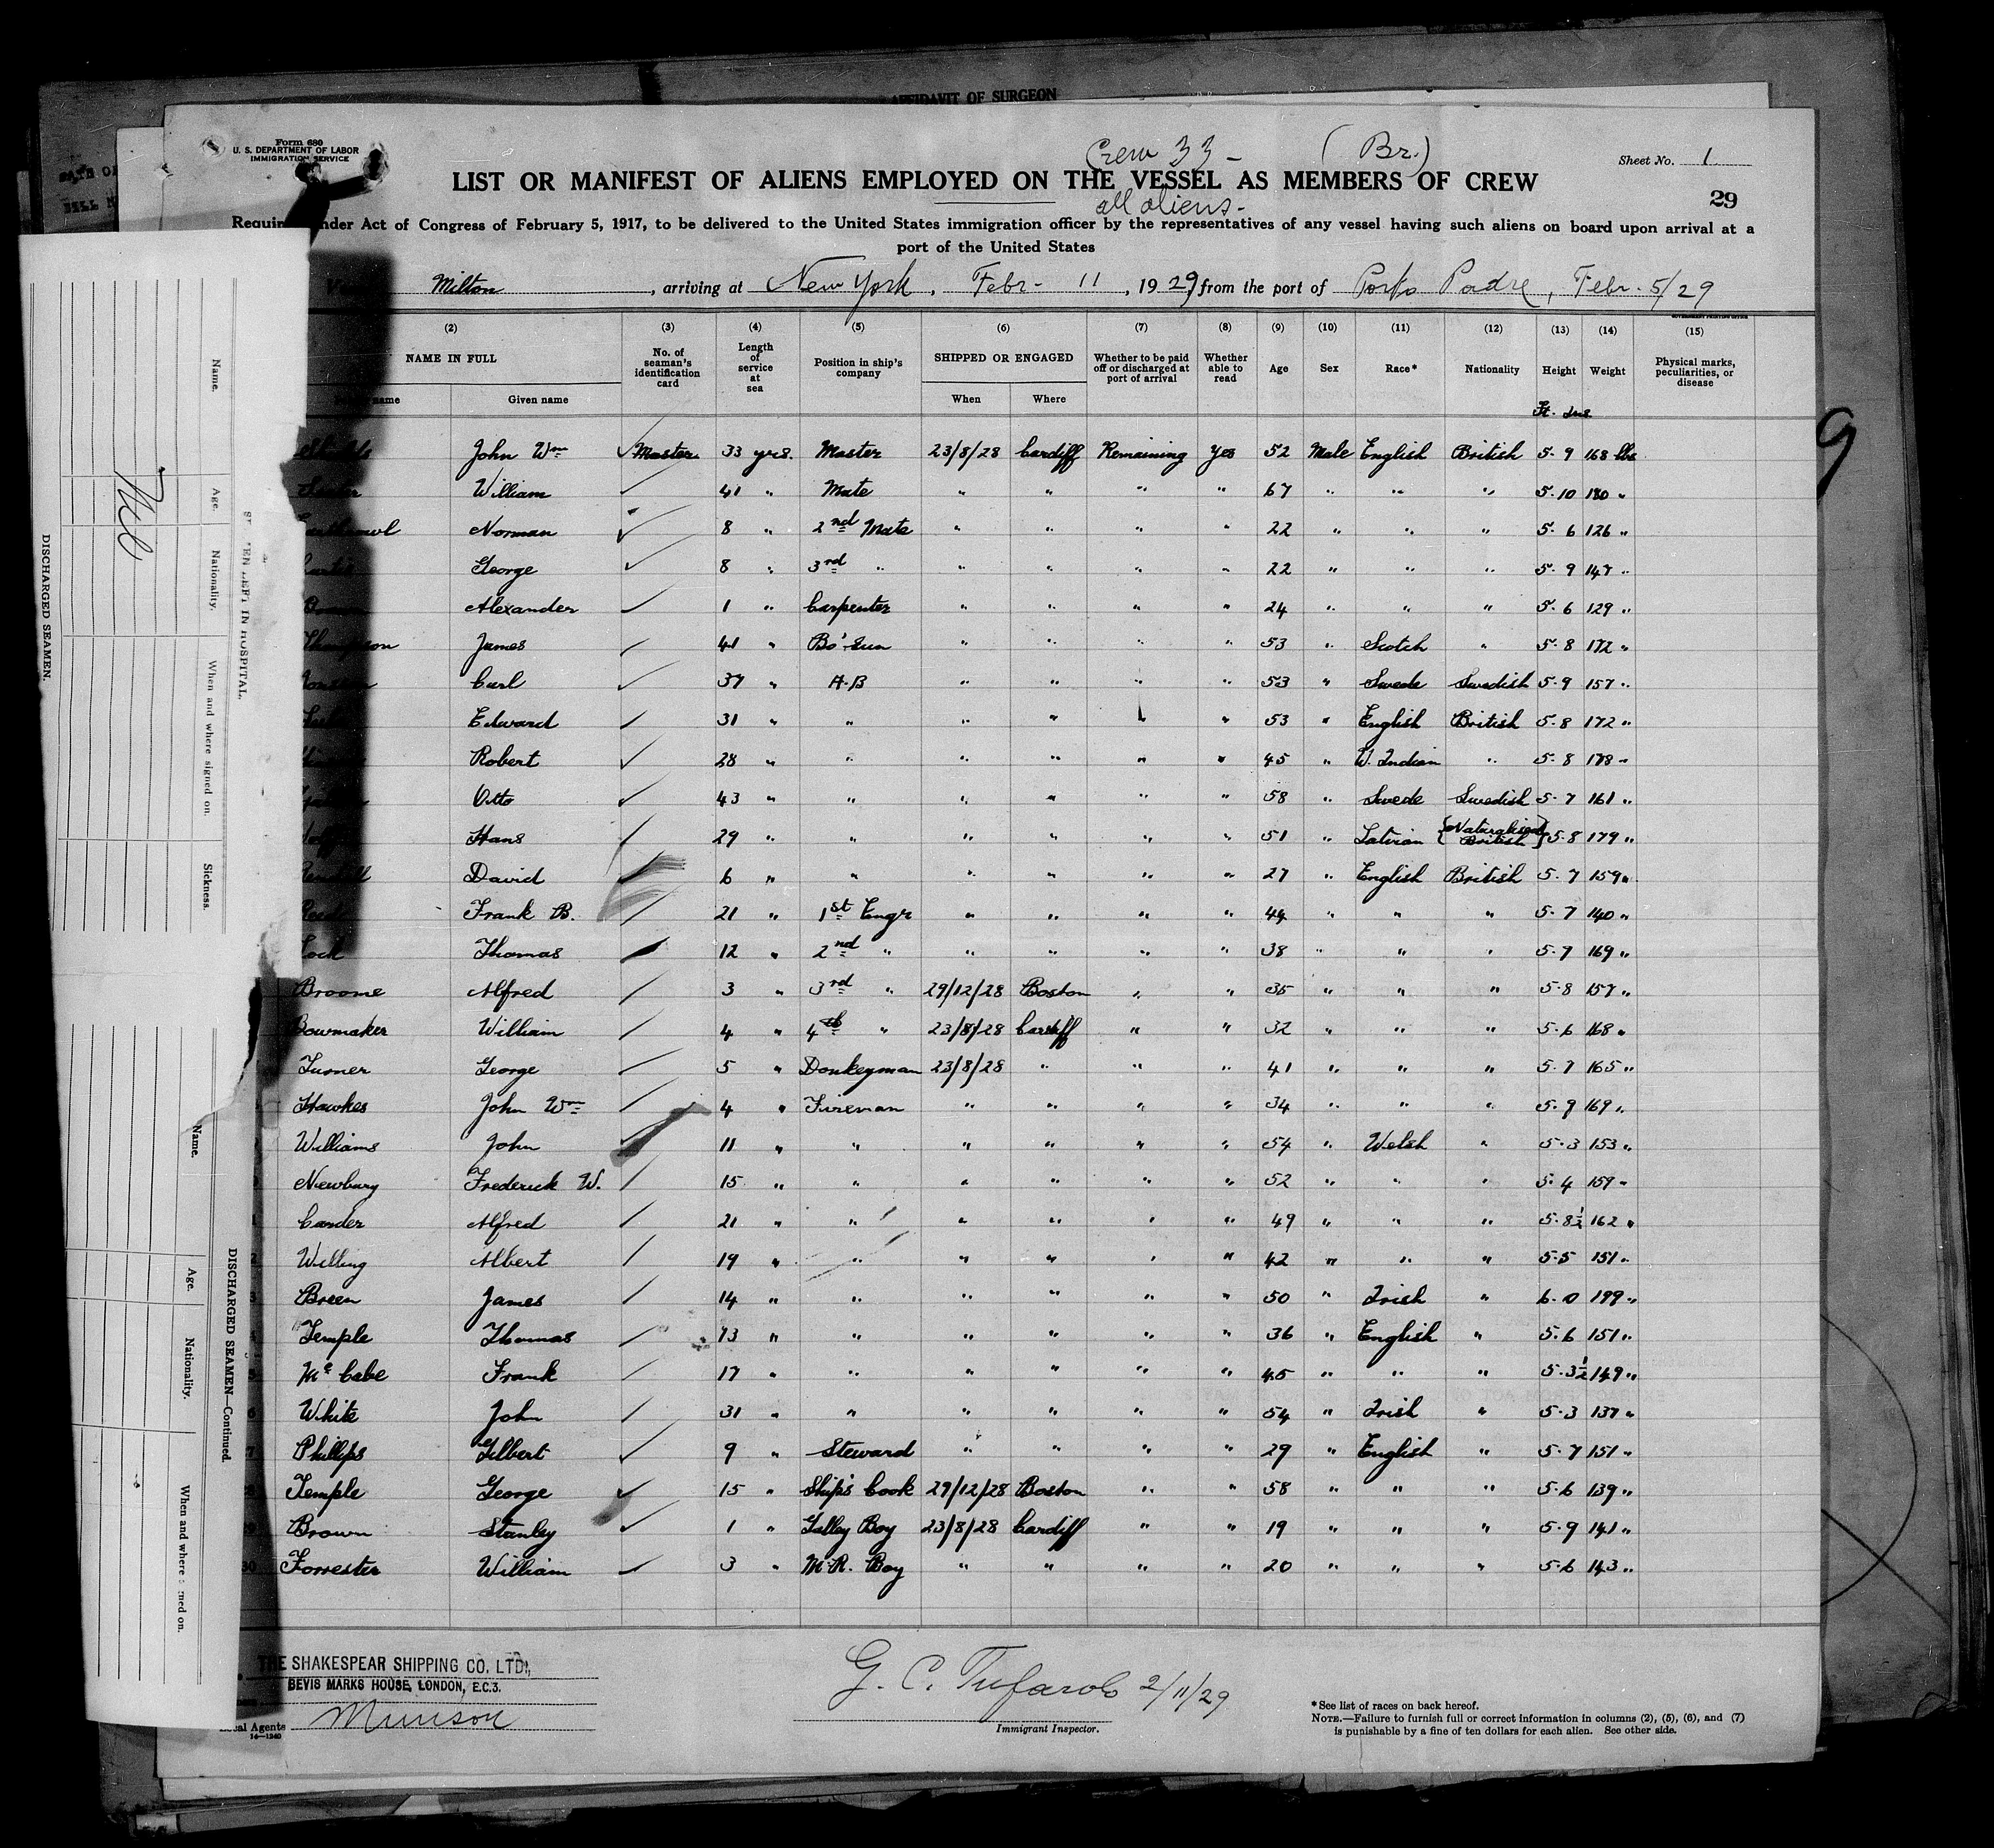 AFFIDAVIT OF SURGEON
Form 680
U. S. DEPARTMENT OF LABOR
IMMIGRATION SERVICE
Crew 33 - (Br.)
Sheet No. 1
LIST OR MANIFEST OF ALIENS EMPLOYED ON THE VESSEL AS MEMBERS OF CREW
all aliens -
29
under Act of Congress of February 5, 1917, to be delivered to the United States immigration officer by the representatives of any vessel having such aliens on board upon arrival at a
port of the United States
Milton, arriving at New York, Febr- 11, 1929, from the port of Porto Padre, Febr. 5/29
(2) (3) (4) (5) (6) (7) (8) (9) (10) (11) (12) (13) (14) (15)
NAME IN FULL No. of seaman's identification card Length of service at sea Position in ship's company SHIPPED OR ENGAGED Whether to be paid off or discharged at port of arrival Whether able to read Age Sex Race* Nationality Height Weight Physical marks, peculiarities, or disease
name Given name When Where
Ft. Ins.
John Wm Master 33 yrs. Master 23/8/28 Cardiff Remaining Yes 52 Male English British 5. 9 168 lbs
William 41 " Mate " " " " 67 " " " 5. 10 180 "
Norman 8 " 2nd Mate " " " " 22 " " " 5. 6 126 "
George 8 " 3rd " " " " " 22 " " " 5. 9 147 "
Alexander 1 " Carpenter " " " " 24 " " " 5. 6 129 "
Thompson James 41 " Bo'sun " " " " 53 " Scotch " 5. 8 172 "
Carl 37 " A.B " " " " 53 " Swede Swedish 5. 9 157 "
Edward 31 " " " " " " 53 " English British 5. 8 172 "
Robert 28 " " " " " " 45 " W. Indian " 5. 8 178 "
Otto 43 " " " " " " 58 " Swede Swedish 5. 7 161 "
Hans 29 " " " " " " 51 " Latvian {Naturalised British} 5. 8 179 "
David 6 " " " " " " 27 " English British 5. 7 159 "
Frank B. 21 " 1st Engr " " " " 44 " " " 5. 7 140 "
Lock Thomas 12 " 2nd " " " " " 38 " " " 5. 7 169 "
Broome Alfred 3 " 3rd " 29/12/28 Boston " " 35 " " " 5. 8 157 "
Bowmaker William 4 " 4th " 23/8/28 Cardiff " " 32 " " " 5. 6 168 "
Turner George 5 " Donkeyman 23/8/28 " " " 41 " " " 5. 7 165 "
Hawkes John Wm 4 " Fireman " " " " 34 " " " 5. 9 169 "
Williams John 11 " " " " " " 54 " Welsh " 5. 3 153 "
Newbury Frederick W. 15 " " " " " " 52 " " " 5. 4 159 "
Carder Alfred 21 " " " " " " 49 " " " 5. 8½ 162 "
Willing Albert 19 " " " " " " 42 " " " 5. 5 151 "
Breen James 14 " " " " " " 50 " Irish " 6. 0 199 "
Temple Thomas 13 " " " " " " 36 " English " 5. 6 151 "
Mc Cabe Frank 17 " " " " " " 45 " " " 5. 3½ 149 "
White John 31 " " " " " " 54 " Irish " 5. 3 137 "
Phillips Gilbert 9 " Steward " " " " 29 " English " 5. 7 151 "
Temple George 15 " Ship's Cook 29/12/28 Boston " " 58 " " " 5. 6 139 "
Brown Stanley 1 " Galley Boy 23/8/28 Cardiff " " 19 " " " 5. 9 141 "
30 Forrester William 3 " M.R. Boy " " " " 20 " " " 5. 6 143 "
THE SHAKESPEAR SHIPPING CO. LTD.,
BEVIS MARKS HOUSE, LONDON, E.C.3.
Local Agents Munson
14—1240
2/11/29
Immigrant Inspector.
*See list of races on back hereof.
NOTE.—Failure to furnish full or correct information in columns (2), (5), (6), and (7)
is punishable by a fine of ten dollars for each alien. See other side.
DISCHARGED SEAMEN.
Name. Age. Nationality. When and where signed on. Sickness.
LEFT IN HOSPITAL.
DISCHARGED SEAMEN—Continued.
Name. Age. Nationality. When and where signed on.